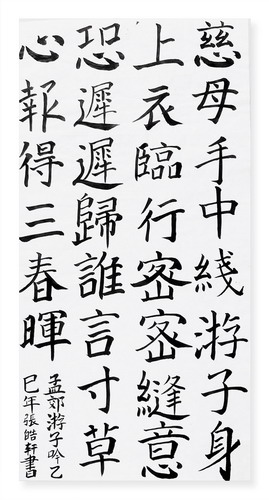 慈母手中綫游子身
上衣臨行密密縫意
恐遲遲歸誰言寸草
心報得三春暉
孟郊游子吟乙
巳年張皓軒書